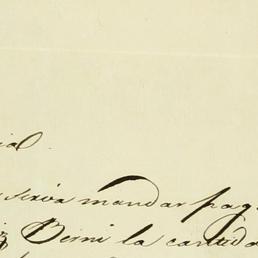 ial.
sirva mandar pag
Berni la cantida